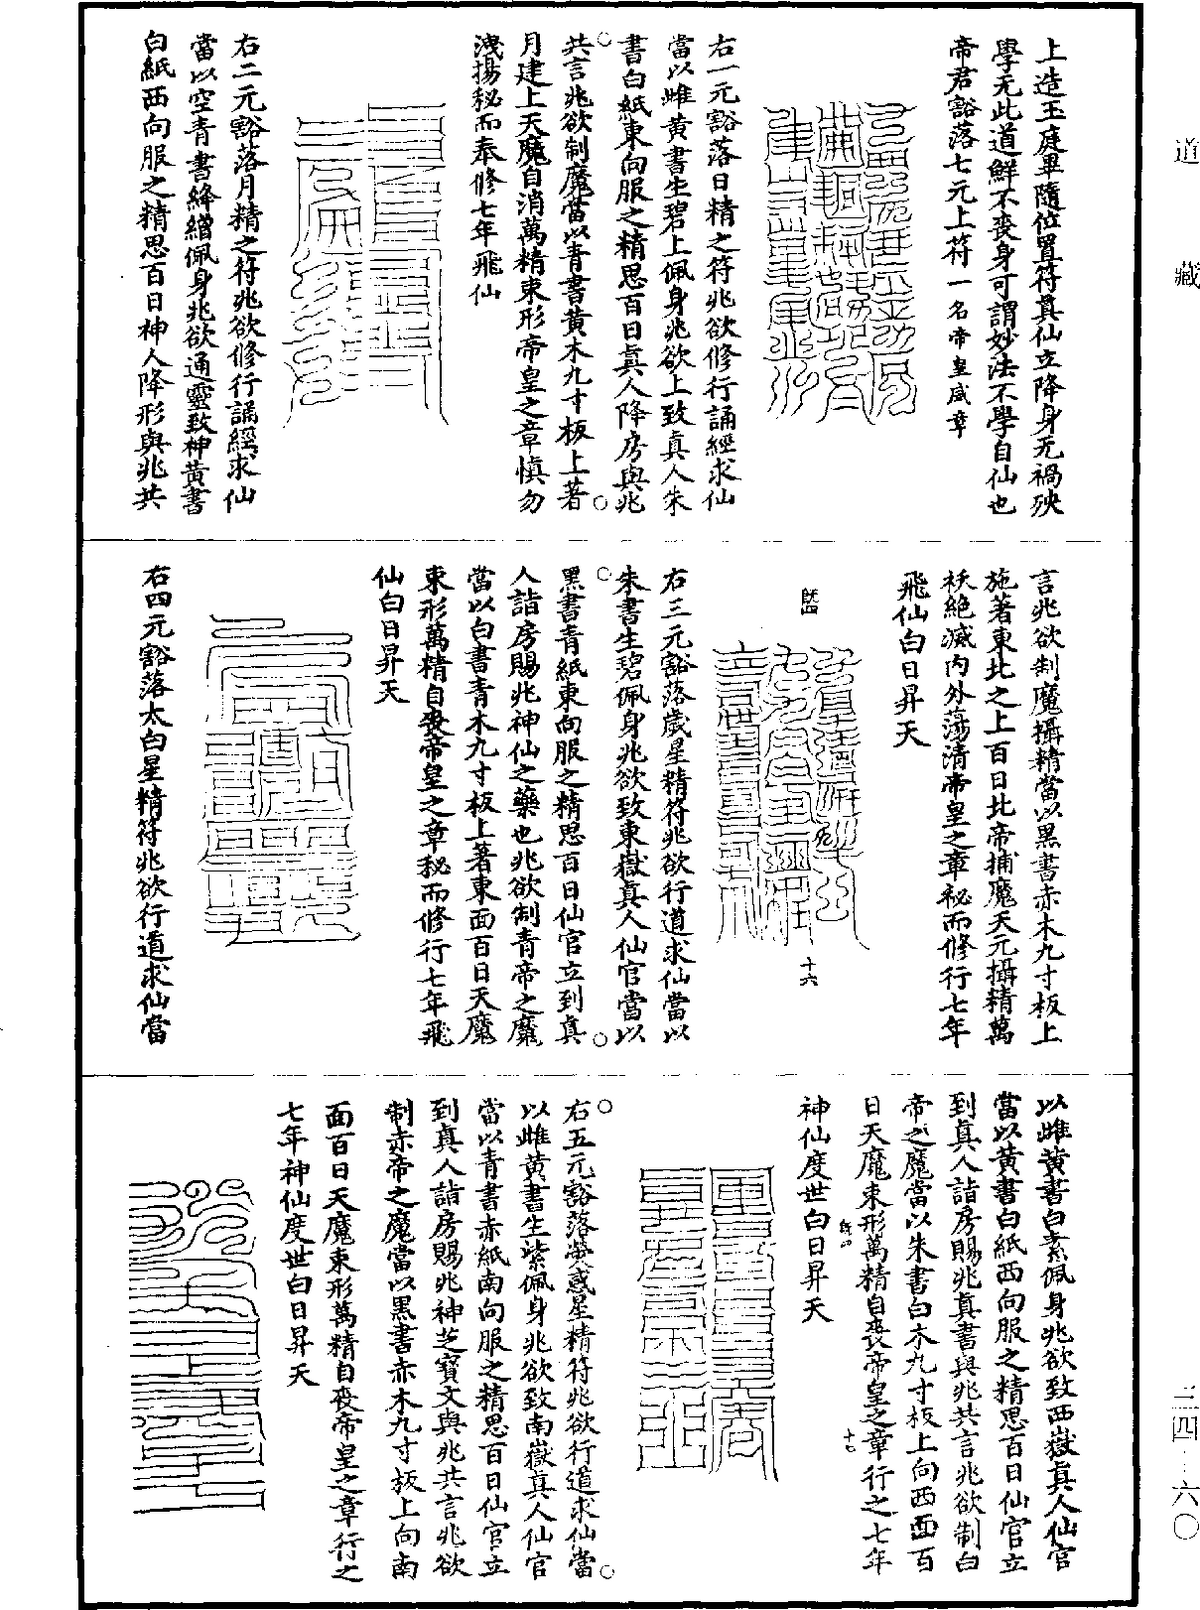 道藏
三四－六〇
上造玉庭畢隨位置符真仙立降身无禍殃
學无此道鮮不喪身可謂妙法不學自仙也
帝君豁落七元上符一名帝皇威章
右一元豁落日精之符兆欲修行誦經求仙
當以雌黃書生碧上佩身兆欲上致真人朱
書白紙東向服之精思百日真人降房與兆
共言兆欲制魔當以青書黃木九寸板上著
月建上天魔自消萬精束形帝皇之章慎勿
洩揚秘而奉修七年飛仙
右二元豁落月精之符兆欲修行誦經求仙
當以空青書絳繒佩身兆欲通靈致神黃書
白紙西向服之精思百日神人降形與兆共
言兆欲制魔攝精當以黑書赤木九寸板上
施著東北之上百日北帝捕魔天元攝精萬
袄絕滅內外蕩清帝皇之章秘而修行七年
飛仙白日昇天
既四
十六
右三元豁落歲星精符兆欲行道求仙當以
朱書生碧佩身兆欲致東嶽真人仙官當以
黑書青紙東向服之精思百日仙官立到真
人詣房賜兆神仙之藥也兆欲制青帝之魔
當以白書青木九寸板上著東面百日天魔
束形萬精自喪帝皇之章秘而修行七年飛
仙白日昇天
右四元豁落太白星精符兆欲行道求仙當
以雌黃書白素佩身兆欲致西嶽真人仙官
當以黃書白紙西向服之精思百日仙官立
到真人詣房賜兆真書與兆共言兆欲制白
帝之魔當以朱書白木九寸板上向西面百
日天魔束形萬精自喪帝皇之章行之七年
既四
十七
神仙度世白日昇天
右五元豁落熒惑星精符兆欲行道求仙當
以雌黃書生紫佩身兆欲致南嶽真人仙官
當以青書赤紙南向服之精思百日仙官立
到真人詣房賜兆神芝寶文與兆共言兆欲
制赤帝之魔當以黑書赤木九寸板上向南
面百日天魔束形萬精自喪帝皇之章行之
七年神仙度世白日昇天